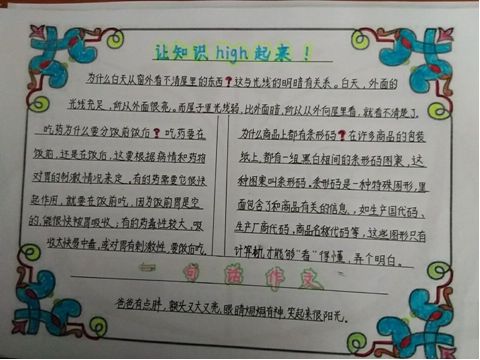 让知识high起来！
为什么白天从窗外看不清屋里的东西？这与光线的明暗有关系。白天，外面的
光线充足，所以外面很亮。而屋子里光线弱，比外面暗，所以从外向屋里看，就看不清楚了。
吃药为什么要分饭前饭后？吃药要在
饭前，还是在饭后，这要根据病情和药物
对胃的刺激情况来定。有的药需要它很快
起作用，就要在饭前吃，因为饭前胃是空
的，能很快被胃吸收；有的药毒性较大，吸
收太快易中毒，或对胃有刺激性，要饭后吃。
为什么商品上都有条形码？在许多商品的包装
纸上，都有一组黑白相间的条形码图案，这
种图案叫条形码。条形码是一种特殊图形，里
面包含了和商品有关的信息，如生产国代码、
生产厂商代码、商品名称代码等，这些图形只有
计算机才能够“看”得懂，弄个明白。
一句话作文
爸爸有点胖，额头又大又亮，眼睛炯炯有神，笑起来很阳光。